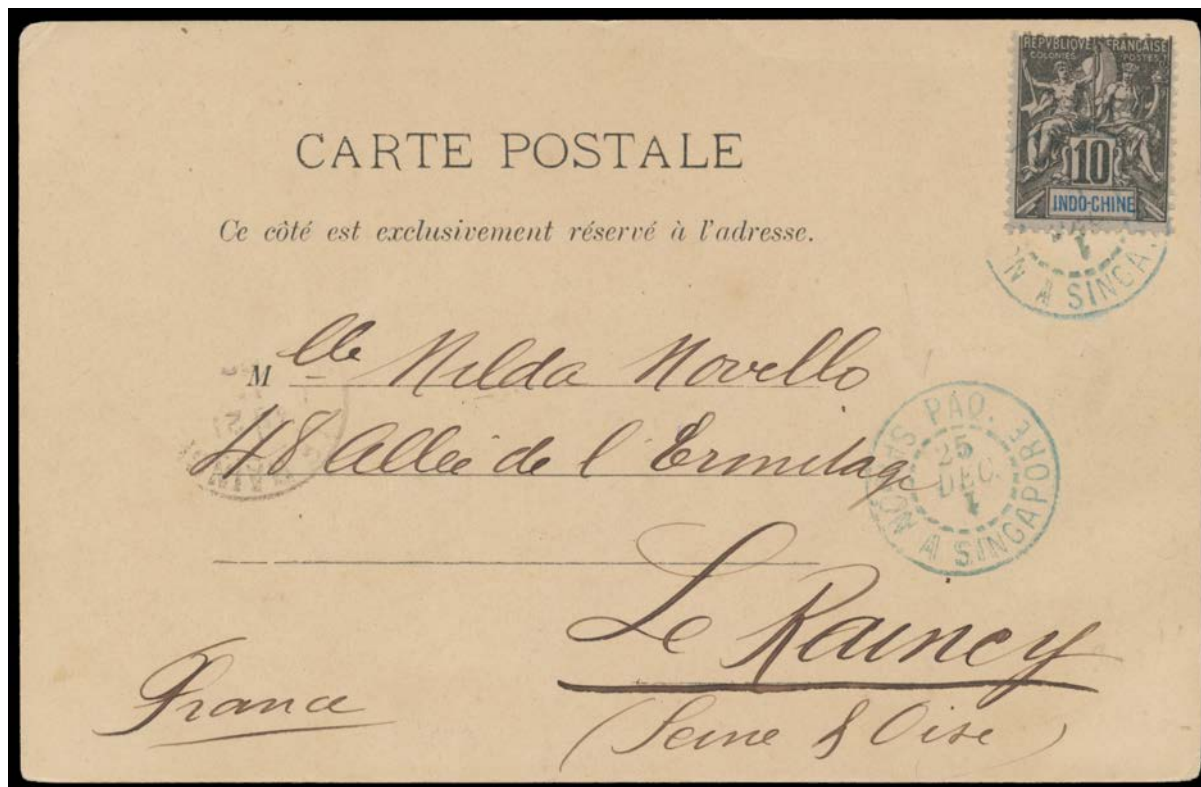 REPVBLIQVE FRANÇAISE
COLONIES POSTES
10
INDO-CHINE
1
ON A SINGA
CARTE POSTALE
Ce côté est exclusivement réservé à l'adresse.
Mlle Nilda Novello
48 Allée de l'Ermitage
PAQ.
25
DEC.
1
A SINGAPORE
Le Raincy
France
(Seine & Oise)